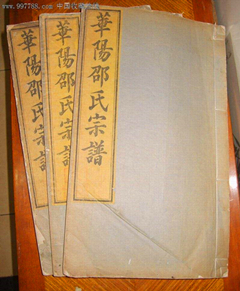 www.997788.com 中国收藏热线
華陽邵氏宗譜
華陽邵氏宗譜
華陽邵氏宗譜